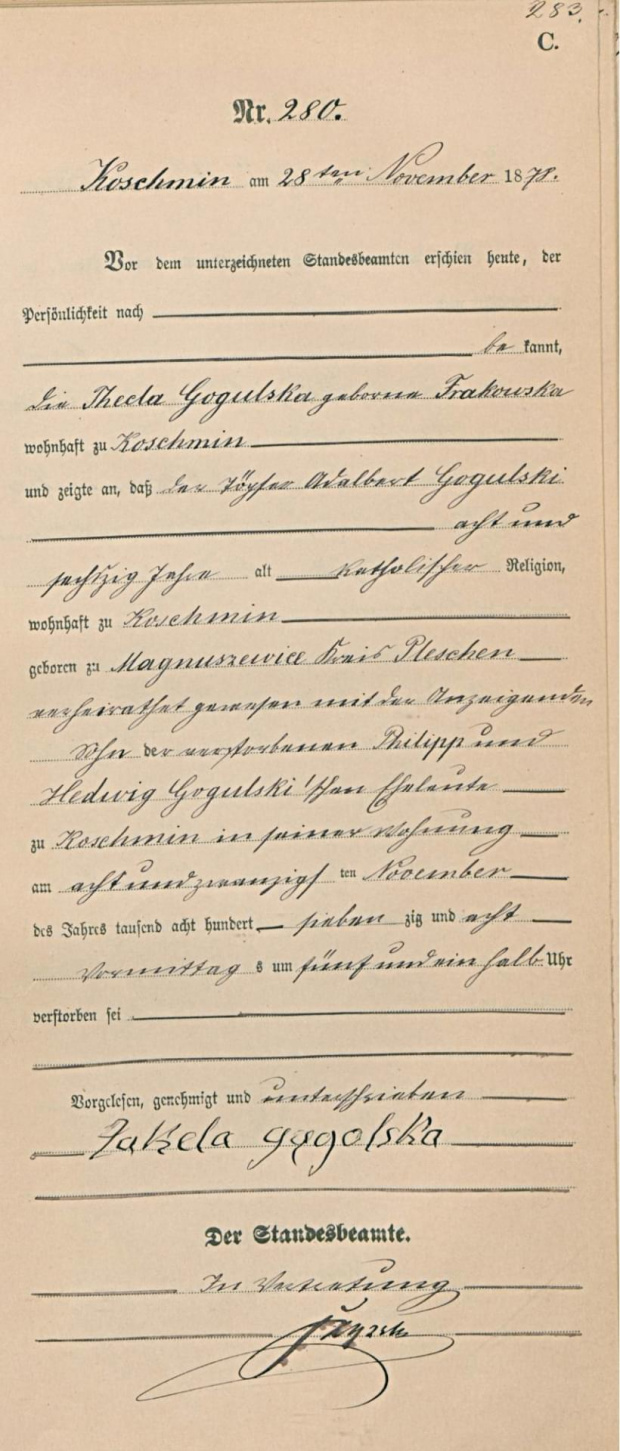 283.
C.
Nr. 280.
Koschmin am 28ten November 1878.
Vor dem unterzeichneten Standesbeamten erschien heute, der
Persönlichkeit nach
be kannt,
die Thecla Gogulska geborne Frakowska
wohnhaft zu Koschmin
und zeigte an, daß der Töpfer Adalbert Gogulski
acht und
sechszig Jahre alt katholischer Religion,
wohnhaft zu Koschmin
geboren zu Magnuszewice Kreis Pleschen
verheirathet gewesen mit der Anzeigenden
Sohn der verstorbenen Philipp und
Hedwig Gogulski'schen Eheleute
zu Koschmin in seiner Wohnung
am acht und zwanzigs ten November
des Jahres tausend acht hundert sieben zig und acht
Vormittag s um fünf und ein halb Uhr
verstorben sei
Vorgelesen, genehmigt und unterschrieben
gogolska
Der Standesbeamte.
In Vertretung